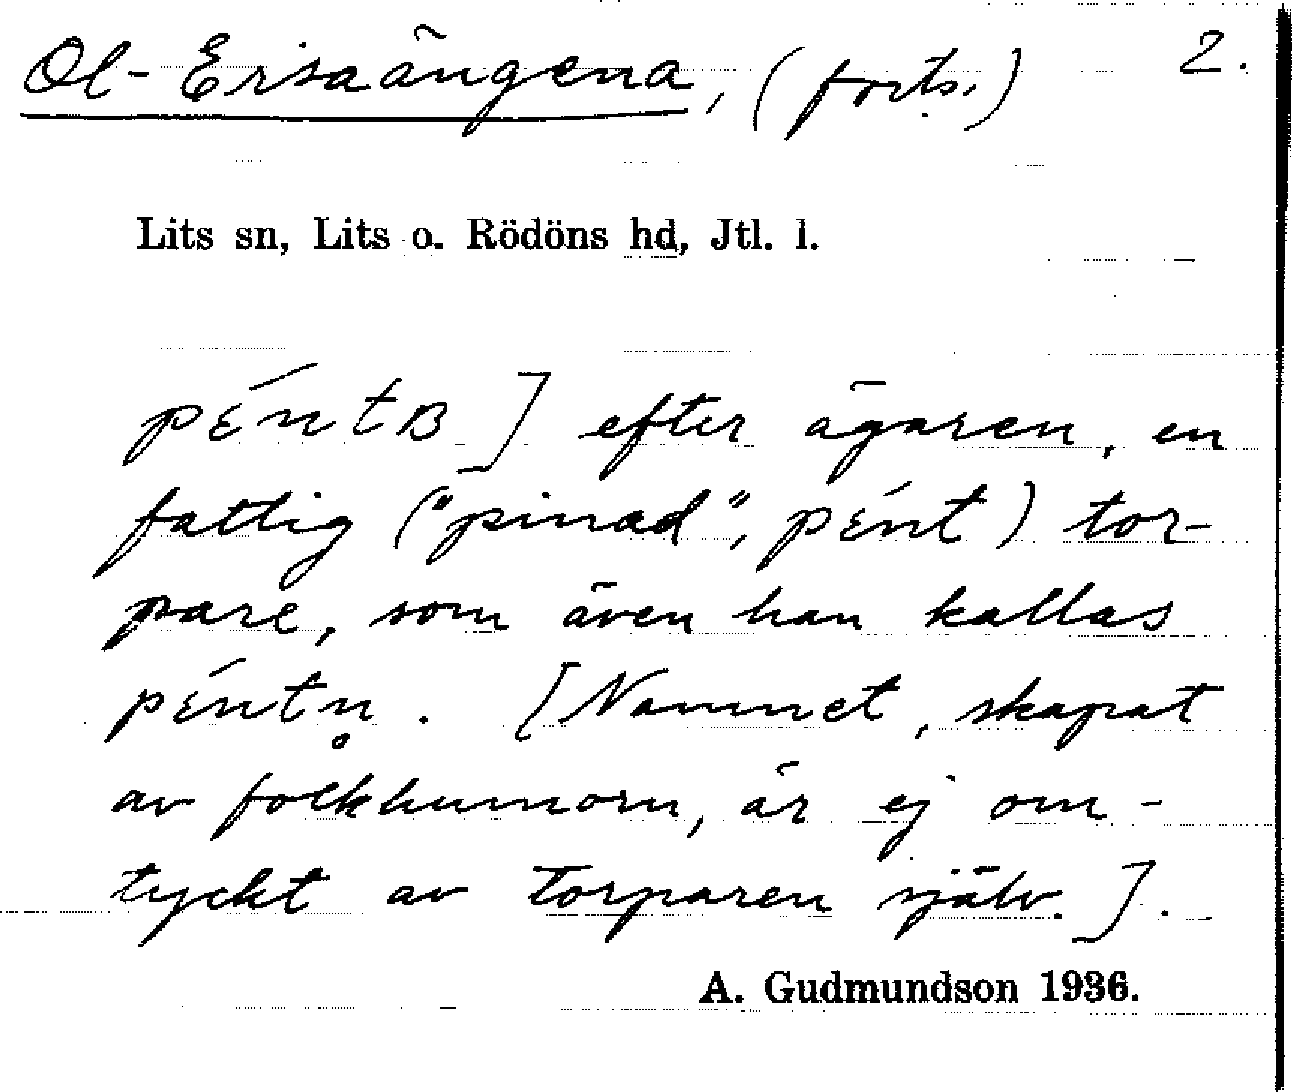 Ol-Ersaängena, (forts.) 2.
Lits sn, Lits o. Rödöns hd, Jtl. l.
pέ́ntʙ] efter ägaren, en
fattig ("pinad", pέ́nt) tor-
pare, som även han kallas
pέ́ntn̥. [Namnet, skapat
av folkhumorn, är ej om-
tyckt av torparen själv.].
A. Gudmundson 1936.